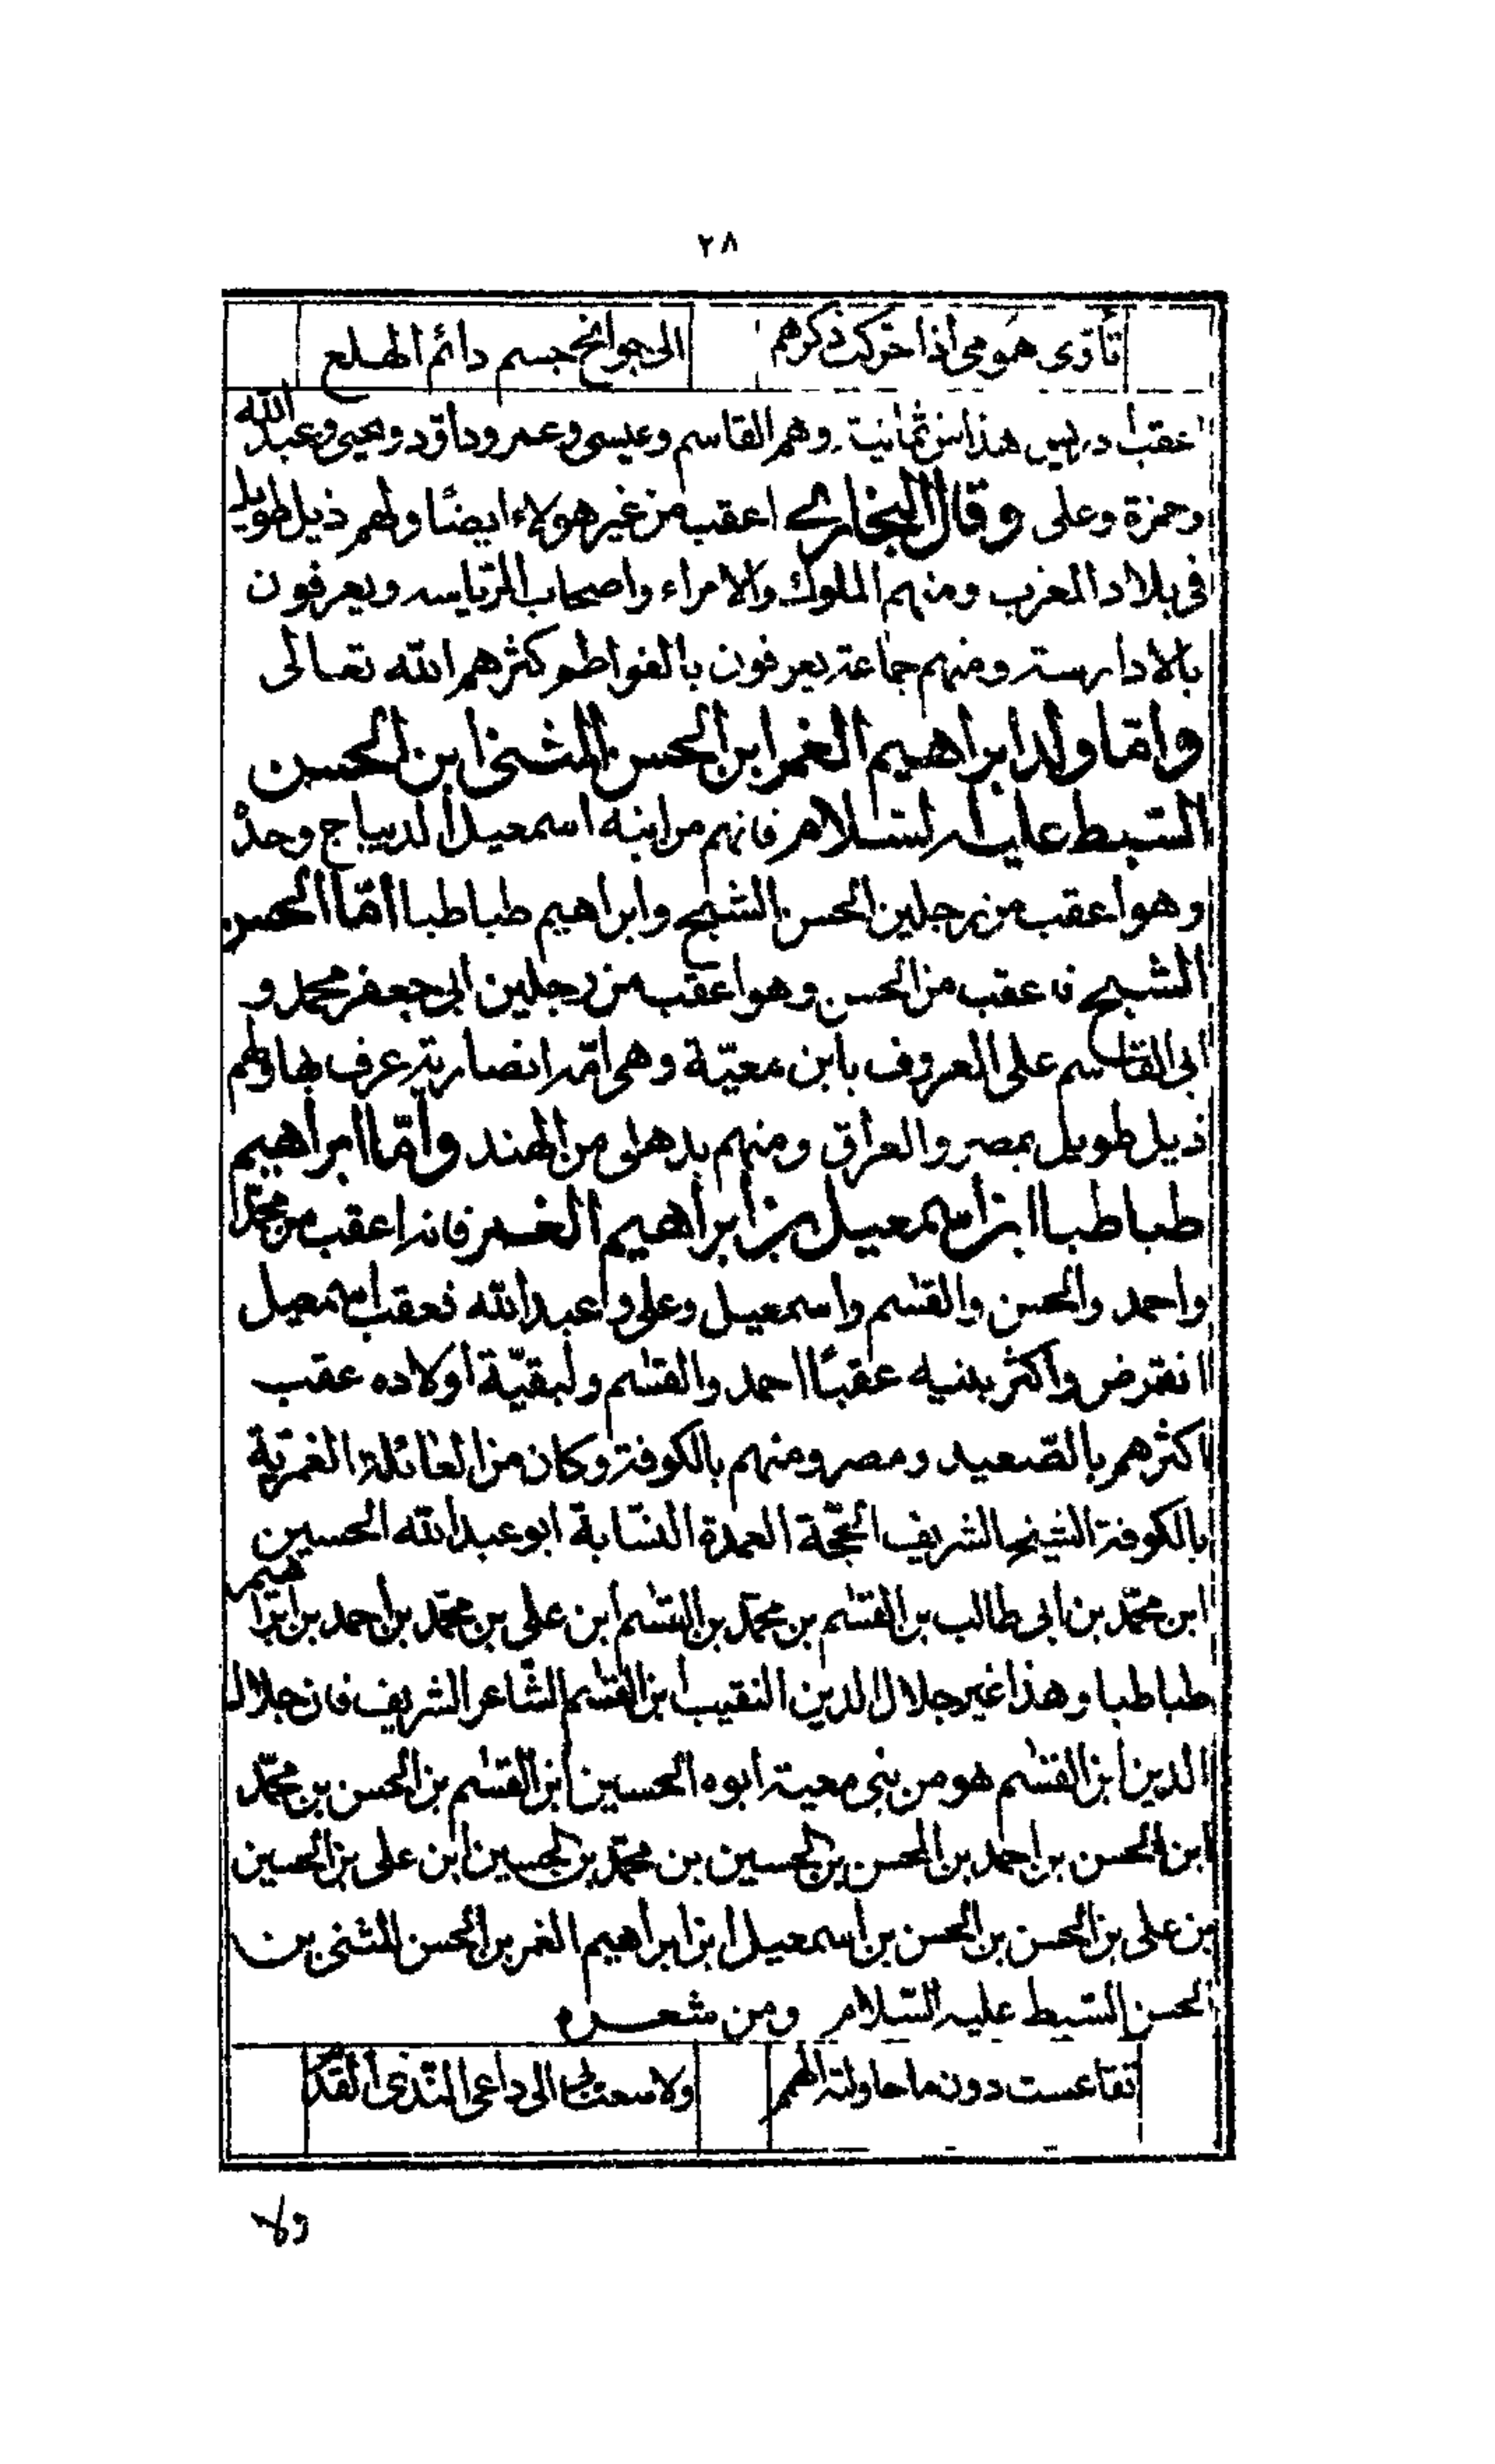 ٢٨
تأوى همومى اذا حركت ذكرهم الى جوانح جسم دائم الهلع
اعقب ادريس هذا من ثمانية وهم القاسم وعيسى وعمر وداؤد ويحيى وعبد الله
وحمزة وعلى وقال البخارى اعقب من غير هولاء ايضًا ولهم ذيل طويل
فى بلاد المغرب ومنهم الملوك والامراء واصحاب الرياسه ويعرفون
بالادارسة ومنهم جماعة يعرفون بالفواطم كثرهم الله تعالى
وامّا ولد ابراهيم الغمر ابن الحسن المثنى ابن الحسن
السّبط عليه السّلام فانهم من ابنه اسمعيل الديباج وحدهُ
وهو اعقب من رجلين الحسن الشبح وابراهيم طباطبا امّا الحسن
الشبح فاعقب من الحسن وهو اعقب من رجلين ابى جعفر محمد و
ابى القاسم على المعروف بابن معيّة وهى امّه انصارية عرف بها ولهم
ذيل طويل بمصر والعراق ومنهم بدهلى من الهند وامّا ابراهيم
طباطبا ابن اسمعيل بن ابراهيم الغمر فانه اعقب من محمّد
واحمد والحسن والقسٰم واسمعيل وعلى وعبد الله فعقب اسمعيل
انقرض واكثر بنيه عقبًا احمد والقسٰم ولبقيّة اولاده عقب
اكثرهم بالصّعيد ومصر ومنهم بالكوفة وكان من العائلة الغمريّة
بالكوفة الشيخ الشريف الحجّة العمدة النسّابة ابو عبد الله الحسين
ابن محمّد بن ابى طالب بن القسٰم بن محمّد بن القسٰم ابن على بن محمّد بن احمد بن ابراهيم
طباطبا وهذا غير جلال الدين النقيب ابن القسٰم الشّاعر الشريف فان جلال
الدين ابن القسٰم هو من بنى معية ابوه الحسين ابن القسٰم بن الحسن بن محمّد
ابن الحسن بن احمد بن الحسن بن الحسين بن محمّد بن الحسين ابن على بن الحسين
بن على بن الحسن بن الحسن بن اسمعيل ابن ابراهيم الغمر بن الحسن المثنى بن
الحسن السّبط عليه السّلام ومن شعره
تقاعست دون ما حاولته الهمم ولا سعت بى الى داعى النّدى القدم
ولا